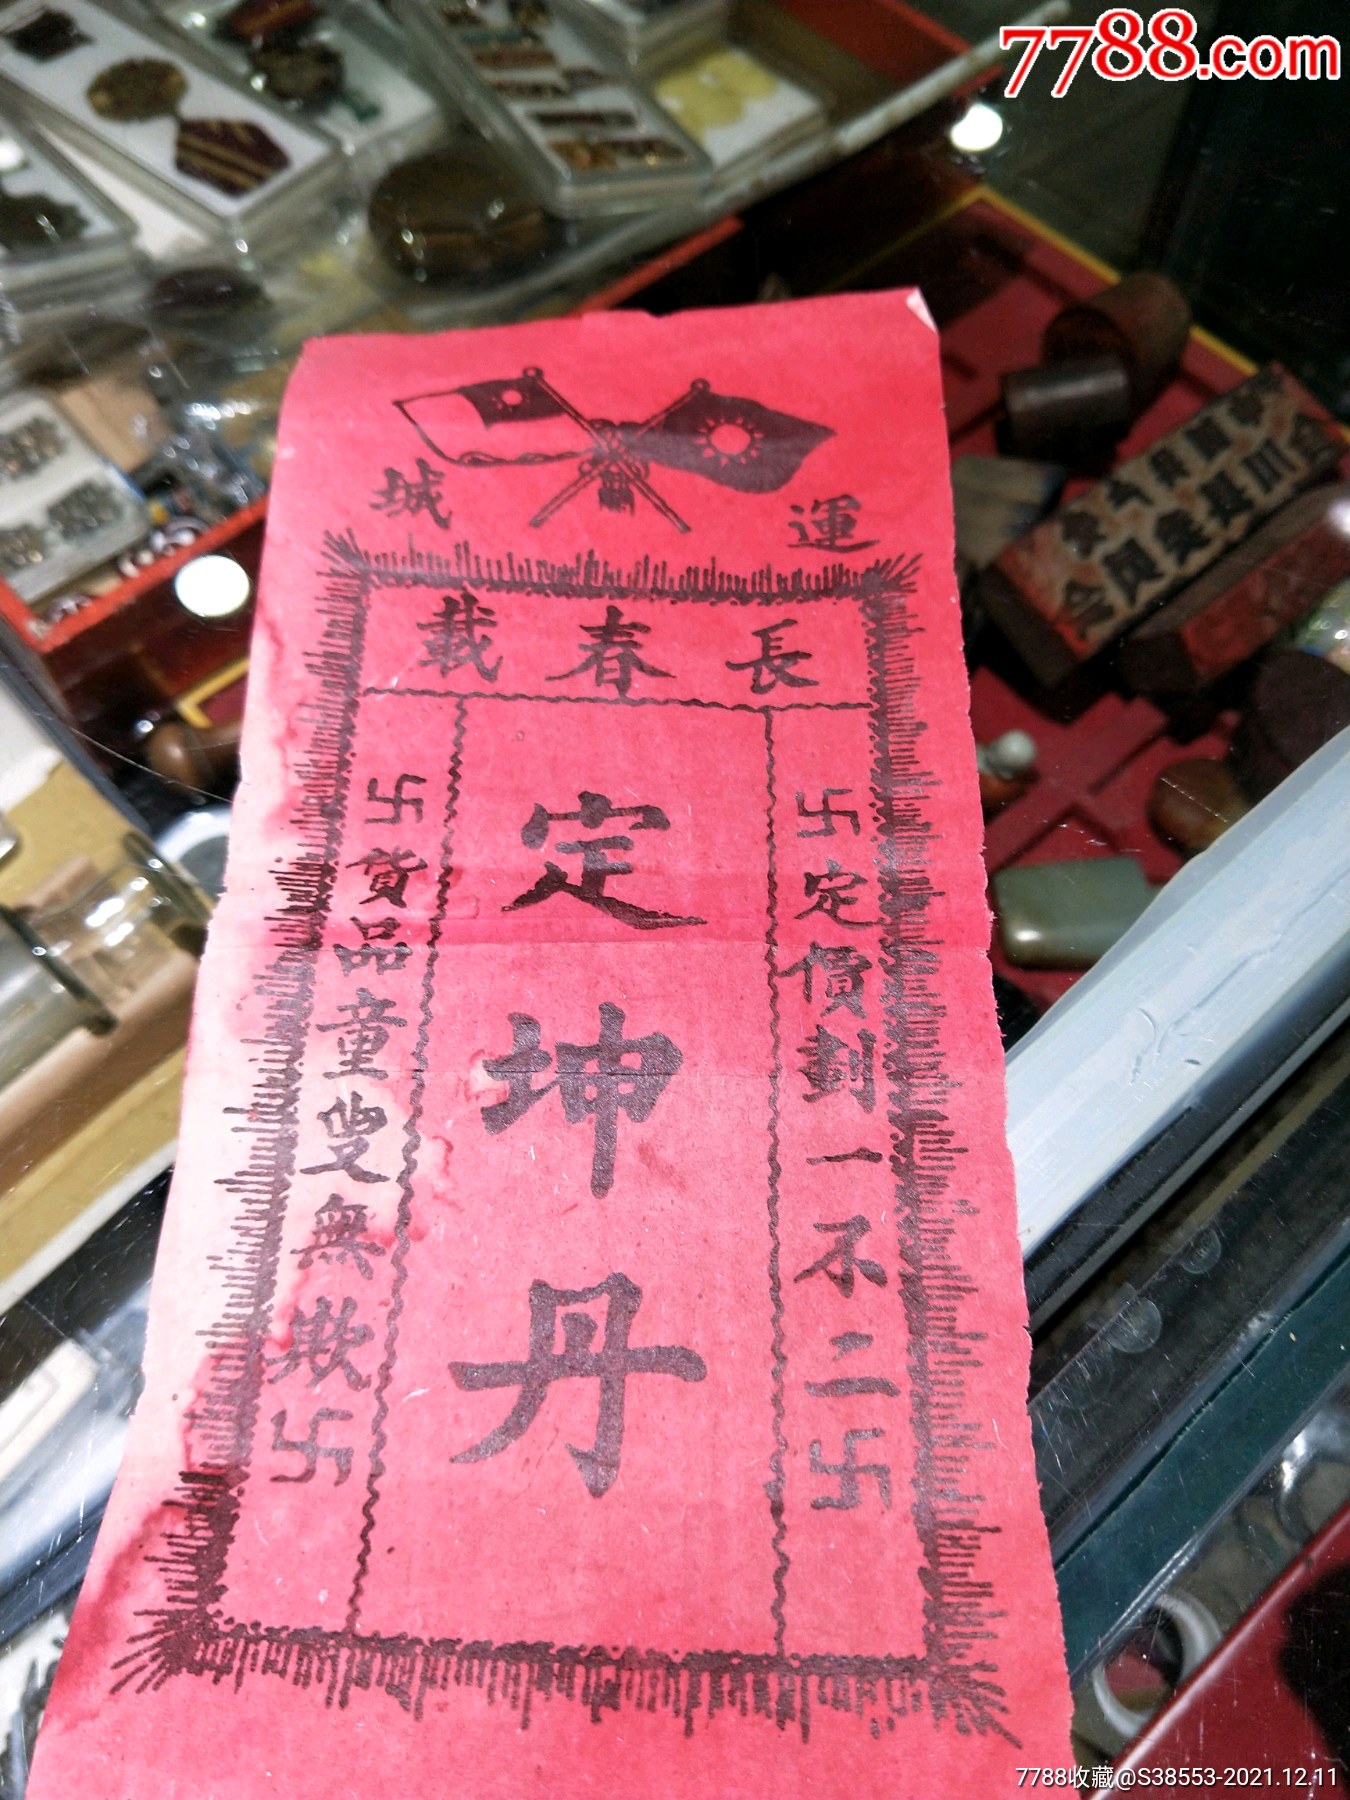 7788.com
運城
長春載
卍定價劃一不二卍
定坤丹
卍貨品童叟無欺卍
7788收藏@S38553-2021.12.11